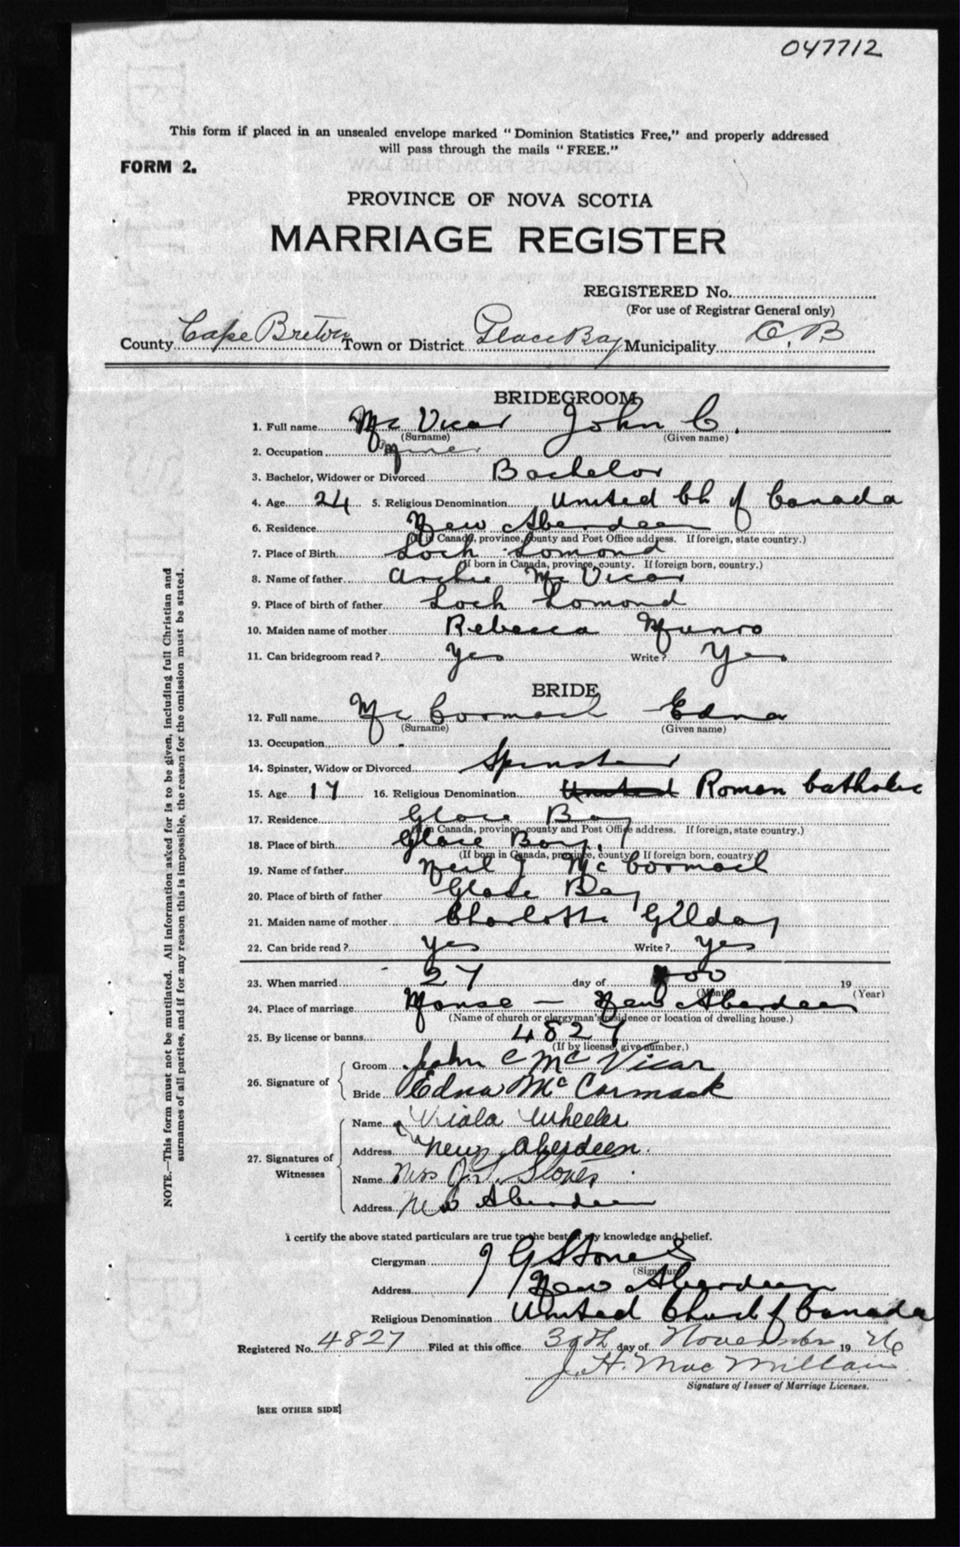 047712
This form if placed in an unsealed envelope marked "Dominion Statistics Free," and properly addressed
will pass through the mails "FREE."
FORM 2.
PROVINCE OF NOVA SCOTIA
MARRIAGE REGISTER
REGISTERED No.
(For use of Registrar General only)
County Cape Breton Town or District Glace Bay Municipality C. B
BRIDEGROOM
1. Full name Mc Vicar John C.
(Surname) (Given name)
2. Occupation Miner
3. Bachelor, Widower or Divorced Bachelor
4. Age 24 5. Religious Denomination United Ch of Canada
6. Residence New Aberdeen
(If in Canada, province, county and Post Office address. If foreign, state country.)
7. Place of Birth Loch Lomond
(If born in Canada, province, county. If foreign born, country.)
8. Name of father Archie Mc Vicar
9. Place of birth of father Loch Lomond
10. Maiden name of mother Rebecca Munro
11. Can bridegroom read? Yes Write? Yes
BRIDE
12. Full name Mc Cormack Edna
(Surname) (Given name)
13. Occupation
14. Spinster, Widow or Divorced Spinster
15. Age 17 16. Religious Denomination United Roman Catholic
17. Residence Glace Bay
(If in Canada, province, county and Post Office address. If foreign, state country.)
18. Place of birth Glace Bay
(If born in Canada, province, county. If foreign born, country.)
19. Name of father Neil J Mc Cormack
20. Place of birth of father Glace Bay
21. Maiden name of mother Charlotte Gilday
22. Can bride read? Yes Write? Yes
23. When married 27 day of 19
(Month) (Year)
24. Place of marriage Manse — New Aberdeen
(Name of church or clergyman's residence or location of dwelling house.)
25. By license or banns 4827
(If by license, give number.)
26. Signature of
Groom John C McVicar
Bride Edna McCormack
27. Signatures of Witnesses
Name Viola Wheeler
Address New Aberdeen.
Name Mrs J. G. Stones
Address New Aberdeen
I certify the above stated particulars are true to the best of my knowledge and belief.
Clergyman J G Stones
(Signature)
Address New Aberdeen
Religious Denomination United Church of Canada
Registered No. 4827 Filed at this office 30th day of November 1926
J. H. MacMillan
Signature of Issuer of Marriage Licenses.
[SEE OTHER SIDE]
NOTE.—This form must not be mutilated. All information asked for is to be given, including full Christian and
surnames of all parties, and if for any reason this is impossible, the reason for the omission must be stated.